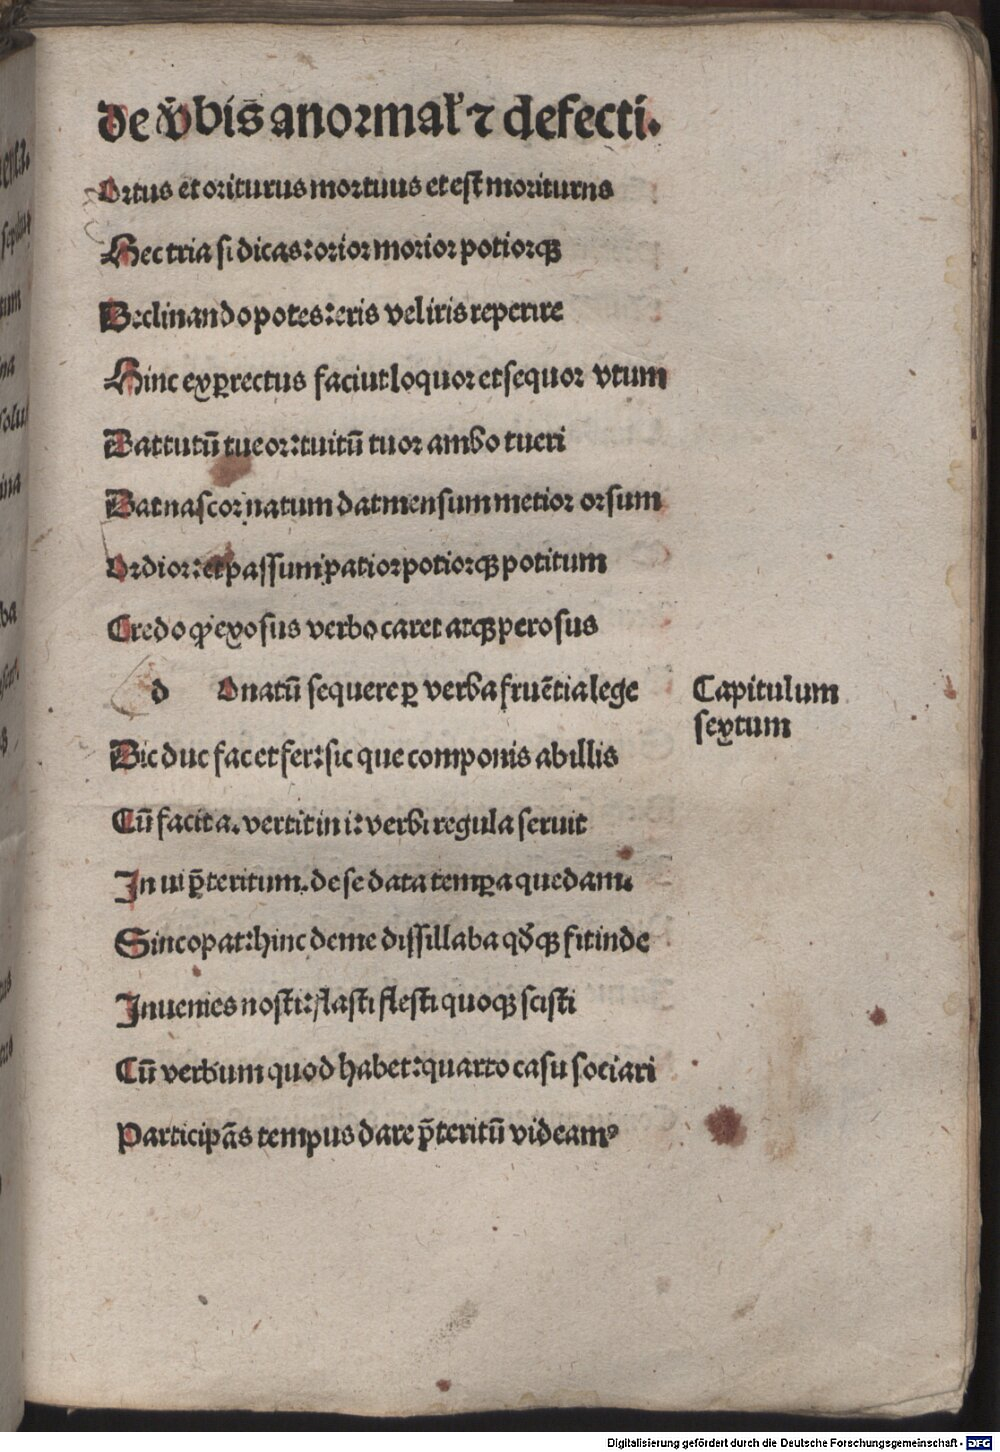 de v̄bis̄ anormal' ⁊ defecti.
Ortus et oriturus mortuus et est moriturus
Hec tria si dicas: orior morior potiorqꝫ
Declinando potes: eris vel iris reperire
Hinc exꝑrectus faciut loquor et sequor vtum
Dat tutū tueor: tuitū tuor ambo tueri
Dat nascor natum dat mensum metior orsum
Ordior: et passum patior potiorqꝫ potitum
Credo ꝙ exosus verbo caret atqꝫ perosus
d Onatū sequere ꝑ verba fruētia lege
Capitulum
sextum
Dic duc fac et fer: sic que componis ab illis
Cū facit a. vertit in i: verbi regula seruit
In ui p̄teritum. de se data temꝑa quedam.
Sincopat: hinc deme dissillaba qđqꝫ fit inde
Inuenies nosti: flasti flesti quoqꝫ scisti
Cū verbum quod habet: quarto casu sociari
Particip̄as tempus dare p̄teritū videamꝰ
Digitalisierung gefördert durch die Deutsche Forschungsgemeinschaft - DFG